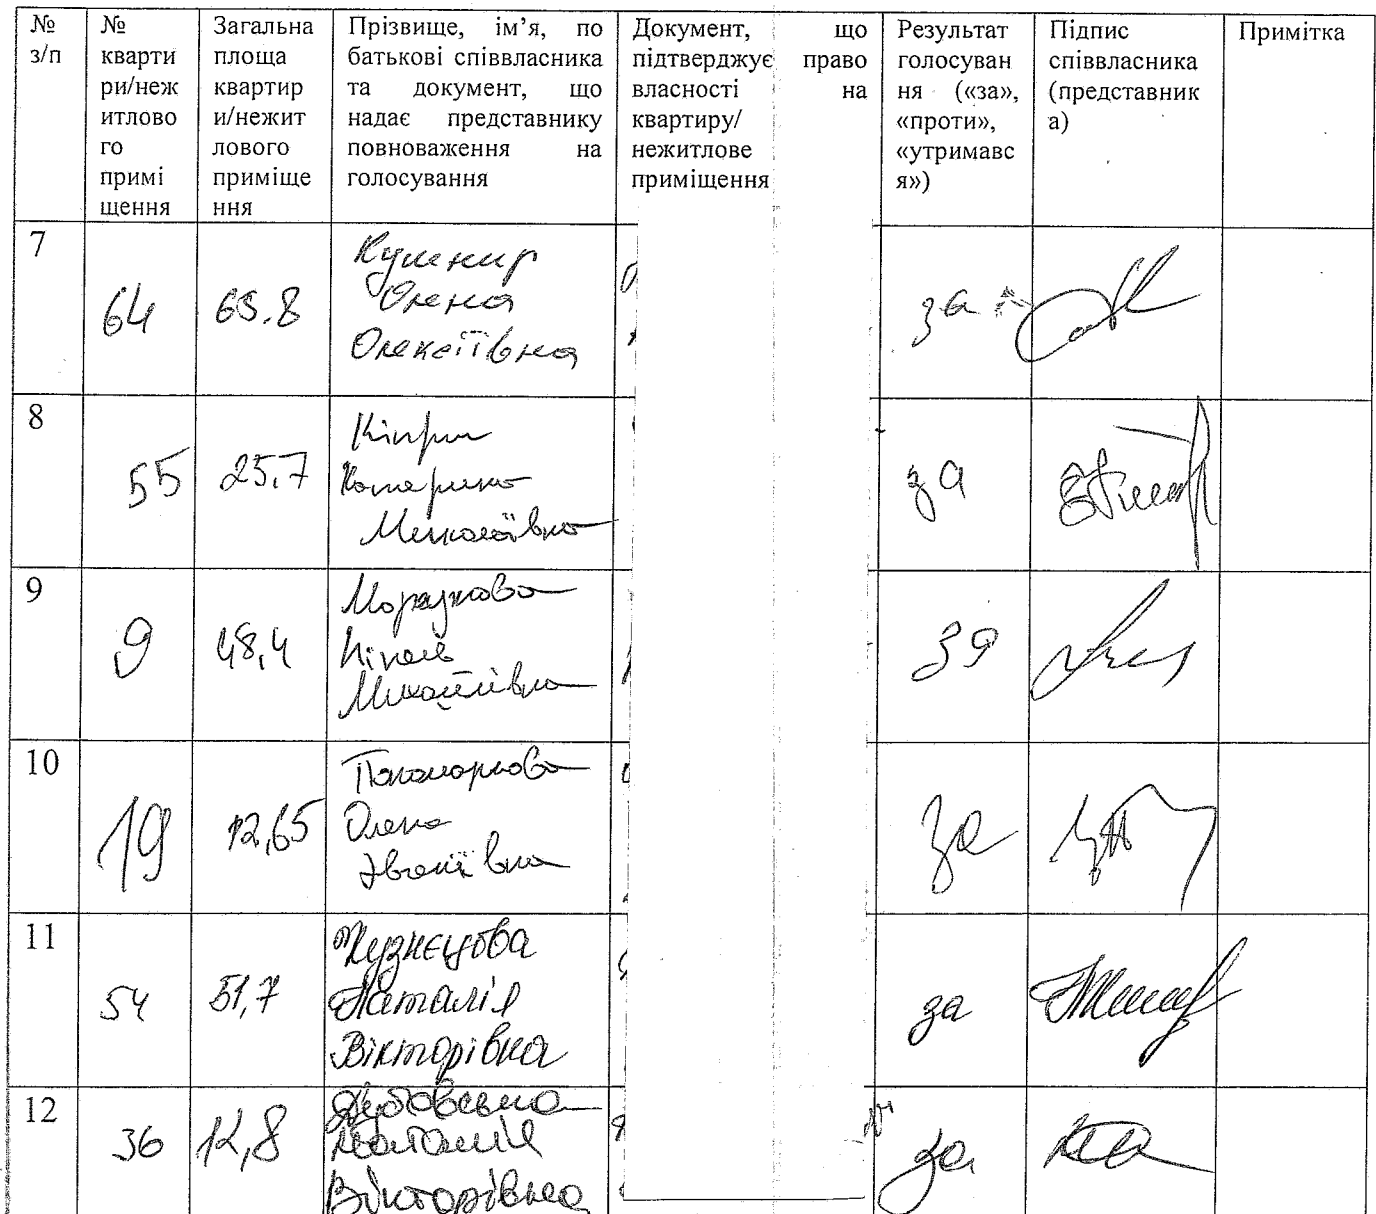 № з/п
№ кварти ри/неж итлово го примі щення
Загальна площа квартир и/нежит лового приміще ння
Прізвище, ім’я, по батькові співвласника та документ, що надає представнику повноваження на голосування
Документ, що підтверджує право власності на квартиру/ нежитлове приміщення
Результат голосуван ня («за», «проти», «утримавс я»)
Підпис співвласника (представник а)
Примітка
7
64
65.8
Кушнир
Олена
Олексіївна
за
8
55
25,7
Катерина
Миколаївна
за
9
9
48,4
Михайлівна
за
10
19
12,65
Пономарьова
Олена
за
11
54
51,7
Кузнєцова
Наталія
Вікторівна
за
12
36
12,8
Наталія
Вікторівна
за